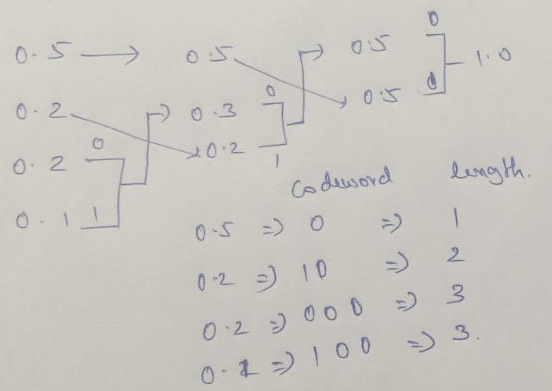 0
0.5 → 0.5 0.5
0 - 1.0
0.2 0.3 0.5 0
0 0.2
0.2 1
0.1 1
Codeword length.
0.5 => 0 => 1
0.2 => 10 => 2
0.2 => 000 => 3
0.1 => 100 => 3.